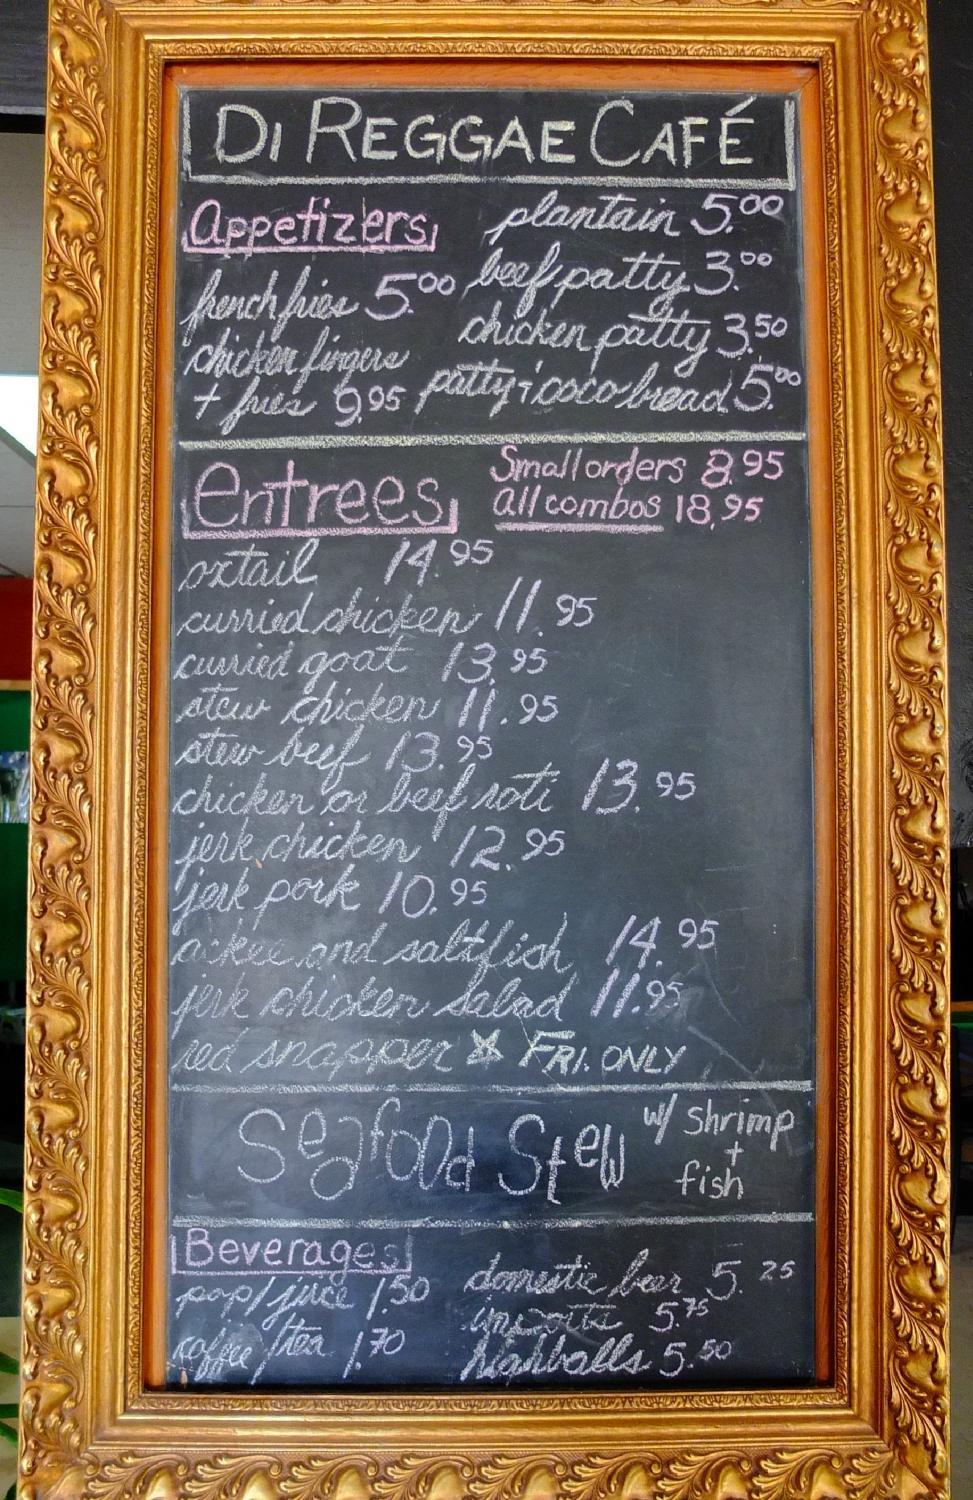 DI REGGAE CAFÉ
Appetizers
french fries 5.00
chicken fingers
+ fries 9.95
plantain 5.00
beef patty 3.00
chicken patty 3.50
patty + coco bread 5.00
Entrees
Small orders 8.95
all combos 18.95
oxtail 14.95
curried chicken 11.95
curried goat 13.95
stew chicken 11.95
stew beef 13.95
chicken or beef roti 13.95
jerk chicken 12.95
jerk pork 10.95
ackee and saltfish 14.95
jerk chicken salad 11.95
red snapper ☆ FRI. ONLY
Seafood Stew
w/ shrimp
+
fish
Beverages
pop/juice 1.50
coffee/tea 1.70
domestic beer 5.25
imports 5.75
highballs 5.50